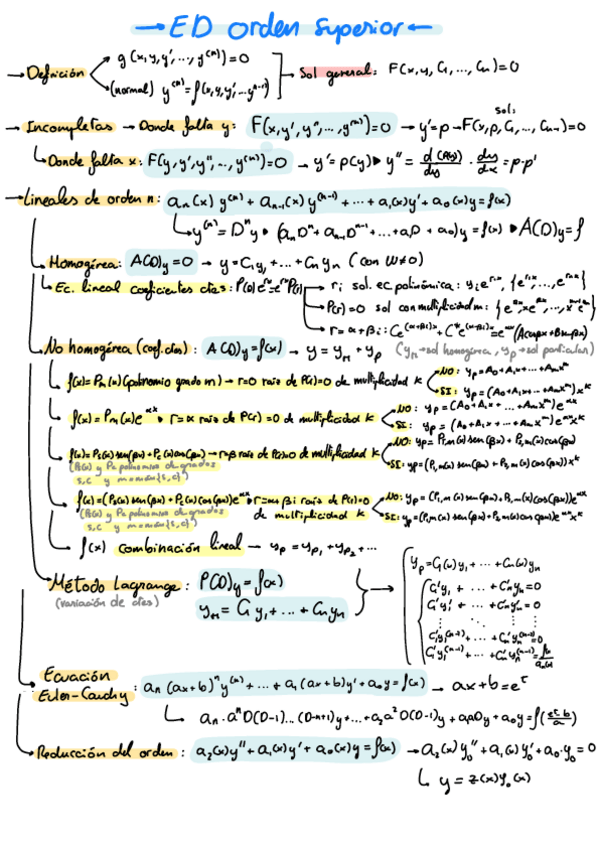 → ED orden superior ←
→ Definición
g(x,y,y',...,y⁽ⁿ⁾)=0
(normal) y⁽ⁿ⁾=f(x,y,y',...yⁿ⁻¹)
→ Sol general: F(x,y,C₁,...,Cn)=0
→ Incompletas → Donde falta y: F(x,y',y'',...,y⁽ⁿ⁾)=0 → y'=p → F(x,p,C₁,...,Cn-1)=0
sol:
Donde falta x: F(y,y',y'',...,y⁽ⁿ⁾)=0 → y'=p(y) ▸ y''= d(p(y))/dy · dy/dx = p·p'
→ Lineales de orden n: an(x) y⁽ⁿ⁾ + an-1(x) y⁽ⁿ⁻¹⁾ + ... + a₁(x)y' + a₀(x)y = f(x)
y⁽ⁿ⁾ = Dⁿy ▸ (anDⁿ + an-1Dⁿ⁻¹ + ... + a₁D + a₀)y = f(x) ▸ A(D)y = f
Homogénea: A(D)y=0 → y=C₁y₁+...+Cnyn (con W≠0)
Ec. lineal coeficientes ctes: P(D)eʳˣ=eʳˣP(r)
→ ri sol. ec. polinómica: yi eʳⁱˣ, {eʳ¹ˣ,...,eʳⁿˣ}
→ P(r)=0 sol con multiplicidad m:
→ r=α+βi:
No homogénea (coef. ctes): A(D)y=f(x) → y = yH + yp (yH→sol homogénea, yp→sol particular)
f(x)=Pm(x) (polinomio grado m) → r=0 raiz de P(r)=0 de multiplicidad k
NO: yp=A₀+A₁x+...+Amxᵐ
SI: yp=(A₀+A₁x+...+Amxᵐ)xᵏ
f(x)=Pm(x)eᵅˣ ▸ r=α raiz de P(r)=0 de multiplicidad k
NO: yp=(A₀+A₁x+...+Amxᵐ)eᵅˣ
SI: yp=(A₀+A₁x+...+Amxᵐ)eᵅˣxᵏ
f(x)=Ps(x)sen(βx)+Pc(x)cos(βx) → r=βi raiz de P(r)=0 de multiplicidad k
(Ps(x) y Pc polinomios de grados
s,c y m=max{s,c})
NO: yp=P₁,m(x)sen(βx)+P₂,m(x)cos(βx)
SI: yp=(P₁,m(x)sen(βx)+P₂,m(x)cos(βx))xᵏ
f(x)=(Ps(x)sen(βx)+Pc(x)cos(βx))eᵅˣ ▸ r=α±βi raiz de P(r)=0
de multiplicidad k
(Ps(x) y Pc polinomios de grados
s,c y m=max{s,c})
NO: yp=(P₁,m(x)sen(βx)+P₂,m(x)cos(βx))eᵅˣ
SI: yp=(P₁,m(x)sen(βx)+P₂,m(x)cos(βx))eᵅˣxᵏ
f(x) combinación lineal → yp=yp₁+yp₂+...
Método Lagrange: P(D)y=f(x)
(variación de ctes)
yH=C₁y₁+...+Cnyn
yp=C₁(x)y₁+...+Cn(x)yn
C₁'y₁ + ... + Cn'yn=0
C₁'y₁' + ... + Cn'yn'=0
C₁'y₁⁽ⁿ⁻²⁾+...+Cn'yn⁽ⁿ⁻²⁾=0
C₁'y₁⁽ⁿ⁻¹⁾+...+Cn'yn⁽ⁿ⁻¹⁾=f(x)/an(x)
Ecuación
Euler-Cauchy: an(ax+b)ⁿy⁽ⁿ⁾+...+a₁(ax+b)y'+a₀y=f(x) → ax+b=eᵗ
an·aⁿD(D-1)...(D-n+1)y+...+a₂a²D(D-1)y+a₁aDy+a₀y=f((eᵗ-b)/a)
Reducción del orden: a₂(x)y''+a₁(x)y'+a₀(x)y=f(x) → a₂(x)y₀''+a₁(x)y₀'+a₀·y₀=0
y=z(x)y₀(x)